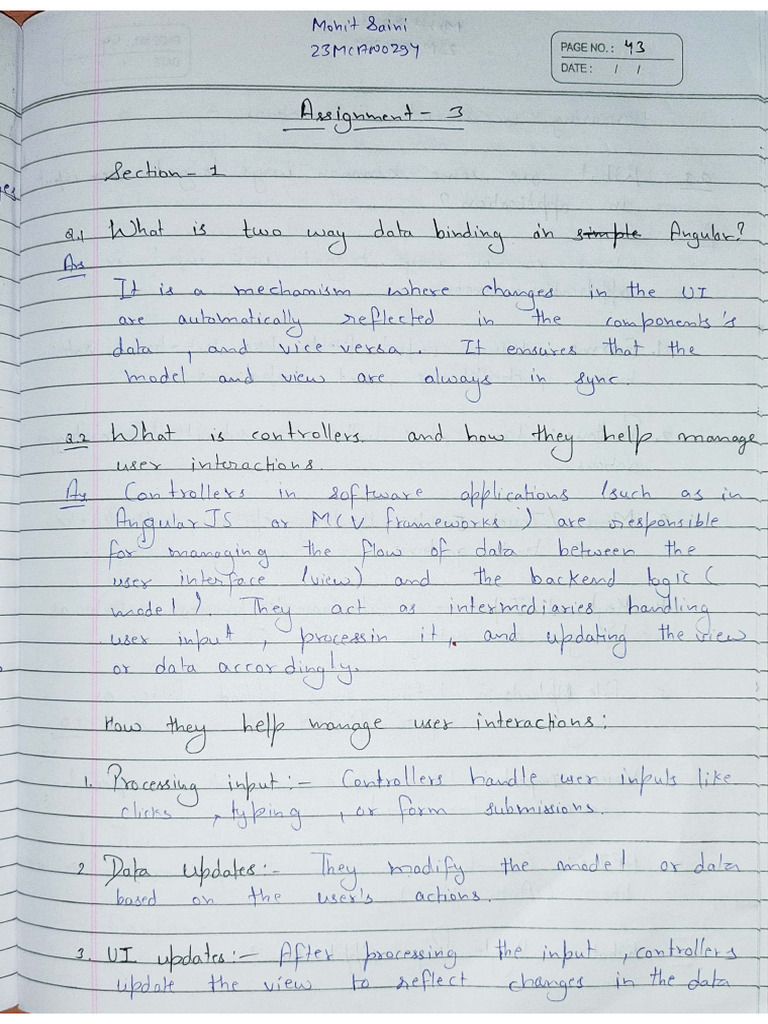 Mohit Saini
23MCAN0294
PAGE NO.: 43
DATE: / /
Assignment - 3
Section - 1
Q.1 What is two way data binding in simple Angular?
Ans
It is a mechanism where changes in the UI
are automatically reflected in the components's
data, and vice versa. It ensures that the
model and view are always in sync.
Q.2 What is controllers. and how they help manage
user interactions.
Ans Controllers in software applications (such as in
AngularJS or MCV frameworks) are responsible
for managing the flow of data between the
user interface (view) and the backend logic (
model). They act as intermediaries handling
user input, processin it, and updating the view
or data accordingly.
How they help manage user interactions:
1. Processing input:- Controllers handle user inputs like
clicks, typing, or form submissions.
2. Data updates:- They modify the model or data
based on the user's actions.
3. UI updates:- After processing the input, controllers
update the view to reflect changes in the data